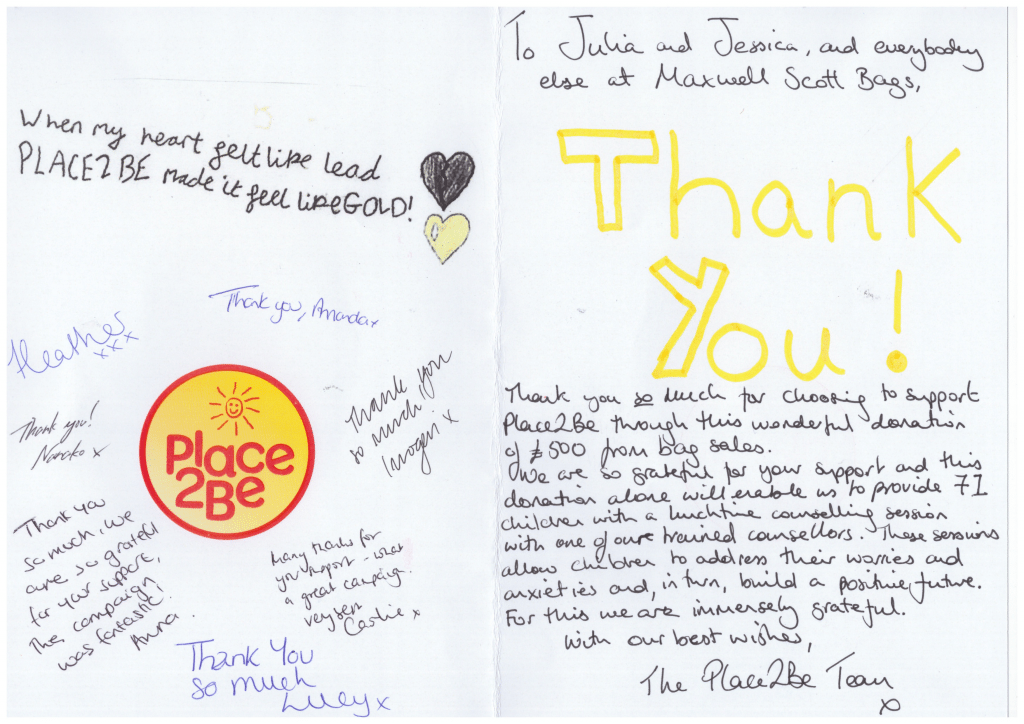 When my heart felt like lead
PLACE2BE made it feel like GOLD!
Thank you, Amanda x
Heather
xxx
Thank you!
x
Place
2Be
Thank you
so much
Imogen x
Thank you
so much, we
are so grateful
for your support,
The campaign
was fantastic!
Anna
Many thanks for
you support - what
a great campaign.
Very best
x
Thank You
so much
Lucy x
To Julia and Jessica, and everybody
else at Maxwell Scott Bags,
Thank
You!
Thank you so much for choosing to support
Place2Be through this wonderful donation
of £500 from bag sales.
We are so grateful for your support and this
donation alone will enable us to provide 71
children with a lunchtime counselling session
with one of our trained counsellors. These sessions
allow children to address their worries and
anxieties and, in turn, build a positive future.
For this we are immensely grateful.
With our best wishes,
The Place2Be Team
x